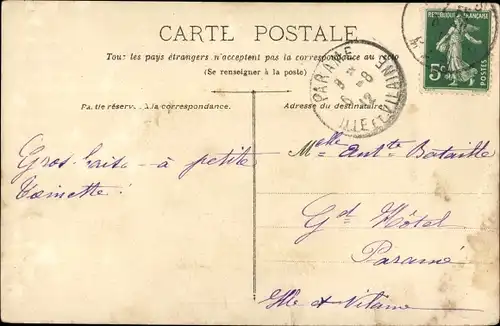 CARTE POSTALE
Tous les pays étrangers n'acceptent pas la correspondance au recto
(Se renseigner à la poste)
REPUBLIQUE FRANÇAISE
5
PARAMÉ
8 - 8
12
ILLE et VILAINE
Partie réservée à la correspondance.
Adresse du destinataire
Gros baise à petite
Toinette!
Melle Antte Bataille
Gd Hôtel
Paramé
Ille et Vilaine